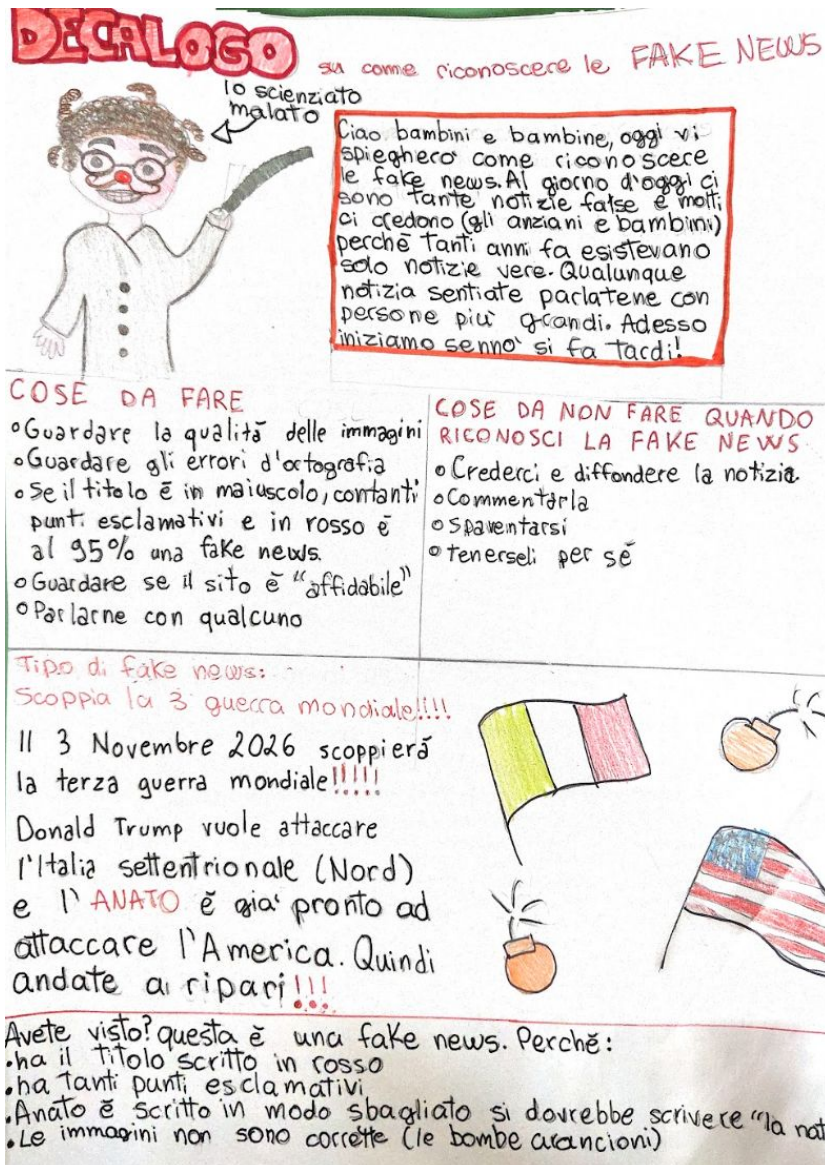 DECALOGO su come riconoscere le FAKE NEWS
lo scienziato
malato
Ciao bambini e bambine, oggi vi
spiegherò come riconoscere
le fake news. Al giorno d'oggi ci
sono tante notizie false e molti
ci credono (gli anziani e bambini)
perchè tanti anni fa esistevano
solo notizie vere. Qualunque
notizia sentiate parlatene con
persone più grandi. Adesso
iniziamo sennò si fa tardi!
COSE DA FARE
Guardare la qualità delle immagini
Guardare gli errori d'ortografia
Se il titolo è in maiuscolo, contanti
punti esclamativi e in rosso è
al 95% una fake news.
Guardare se il sito è "affidabile"
Parlarne con qualcuno
COSE DA NON FARE QUANDO
RICONOSCI LA FAKE NEWS
Crederci e diffondere la notizia.
Commentarla
Spaventarsi
tenerseli per sé
Tipo di fake news:
Scoppia la 3 guerra mondiale!!!!
Il 3 Novembre 2026 scoppierà
la terza guerra mondiale!!!!!
Donald Trump vuole attaccare
l'Italia settentrionale (Nord)
e l'ANATO è già pronto ad
attaccare l'America. Quindi
andate ai ripari!!!
Avete visto? questa è una fake news. Perchè:
•ha il titolo scritto in rosso
•ha tanti punti esclamativi
•Anato è scritto in modo sbagliato si dovrebbe scrivere "la nat
•Le immagini non sono corrette (le bombe arancioni)